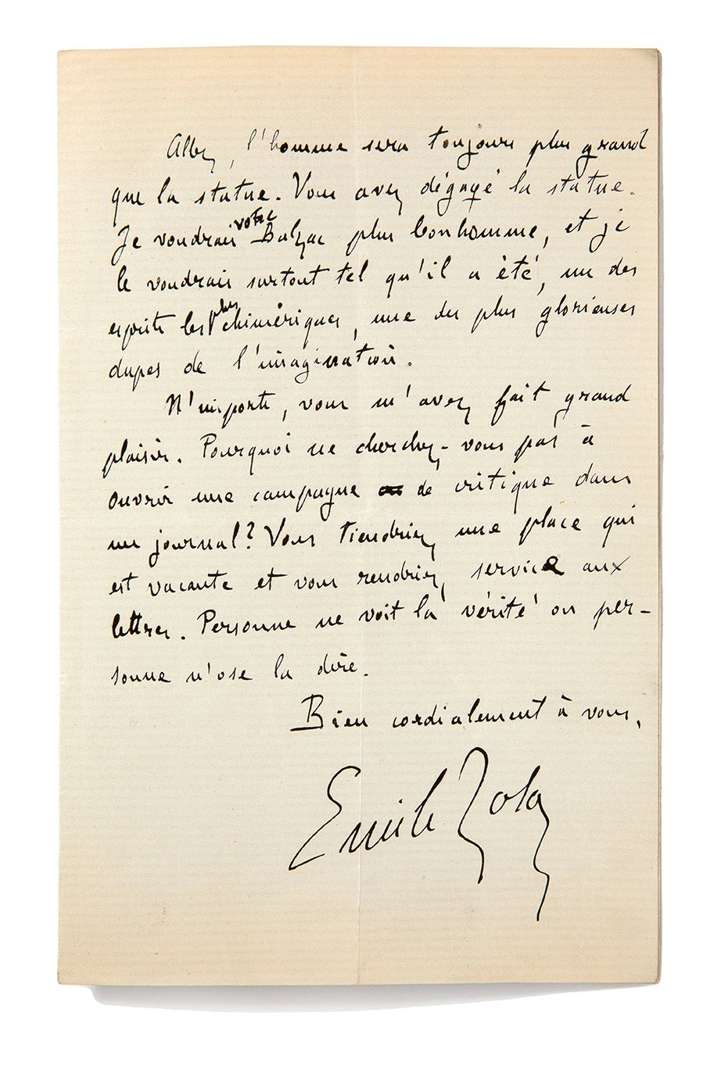 Allez, l'homme sera toujours plus grand
que la statue. Vous avez dégagé la statue.
Je voudrais votre Balzac plus bonhomme, et je
le voudrais surtout tel qu'il a été, un des
esprits les plus chimériques, une des plus glorieuses
dupes de l'imagination.
N'importe, vous m'avez fait grand
plaisir. Pourquoi ne cherchez-vous pas à
ouvrir une campagne de critique dans
un journal? Vous tiendriez une place qui
est vacante et vous rendriez service aux
lettres. Personne ne voit la vérité ou per-
sonne n'ose la dire.
Bien cordialement à vous,
Emile Zola